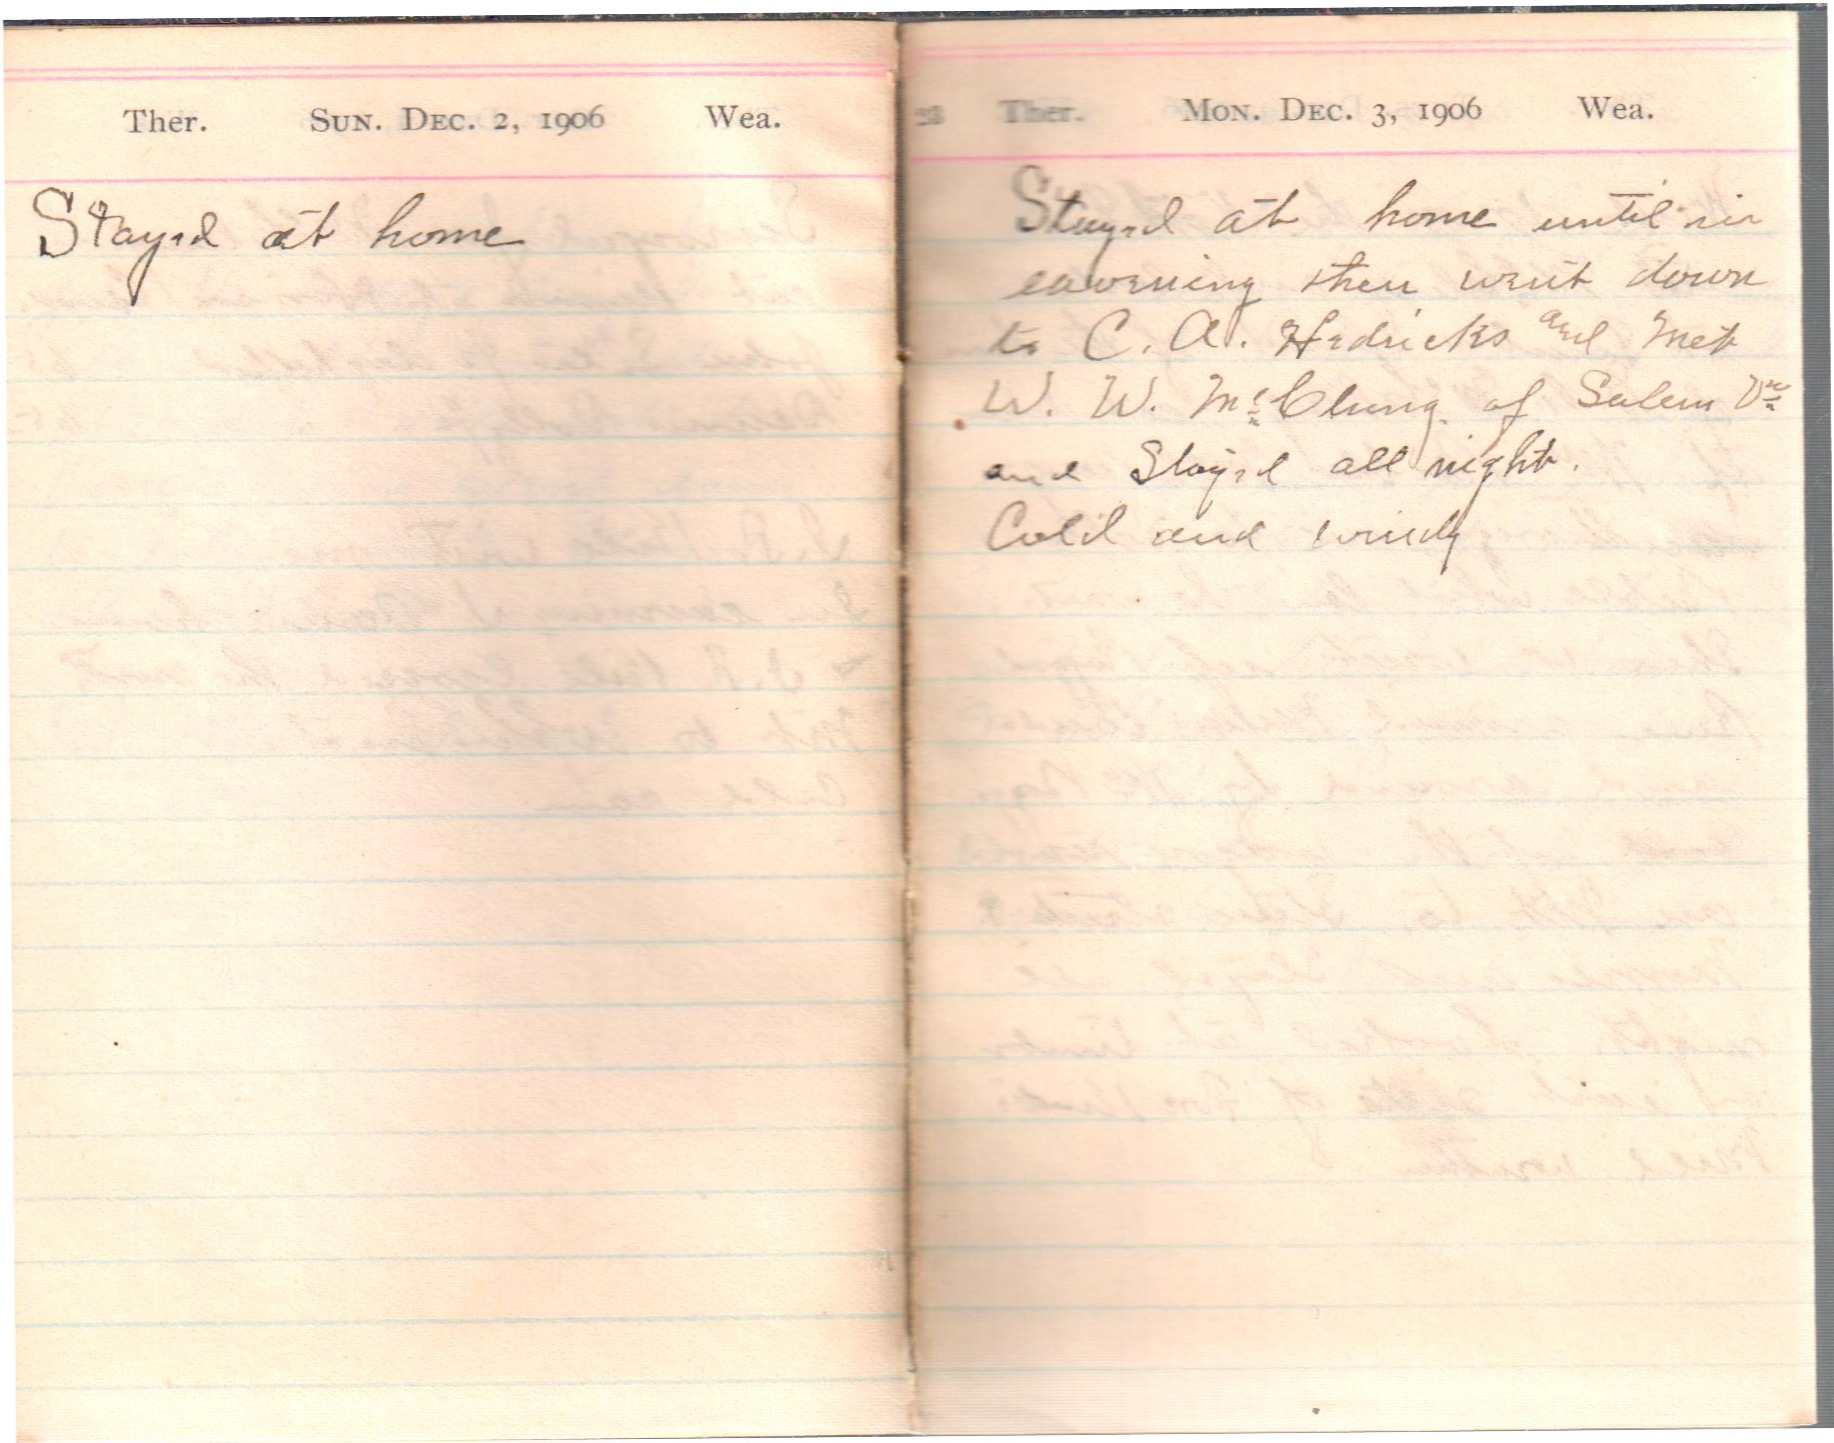 Ther. Sun. Dec. 2, 1906 Wea.
Stayed at home
Ther. Mon. Dec. 3, 1906 Wea.
Stayed at home until in
eavening then went down
to C. A. Hedricks and Met
W. W. McClung of Salem Va
and Stayed all night.
Cold and windy